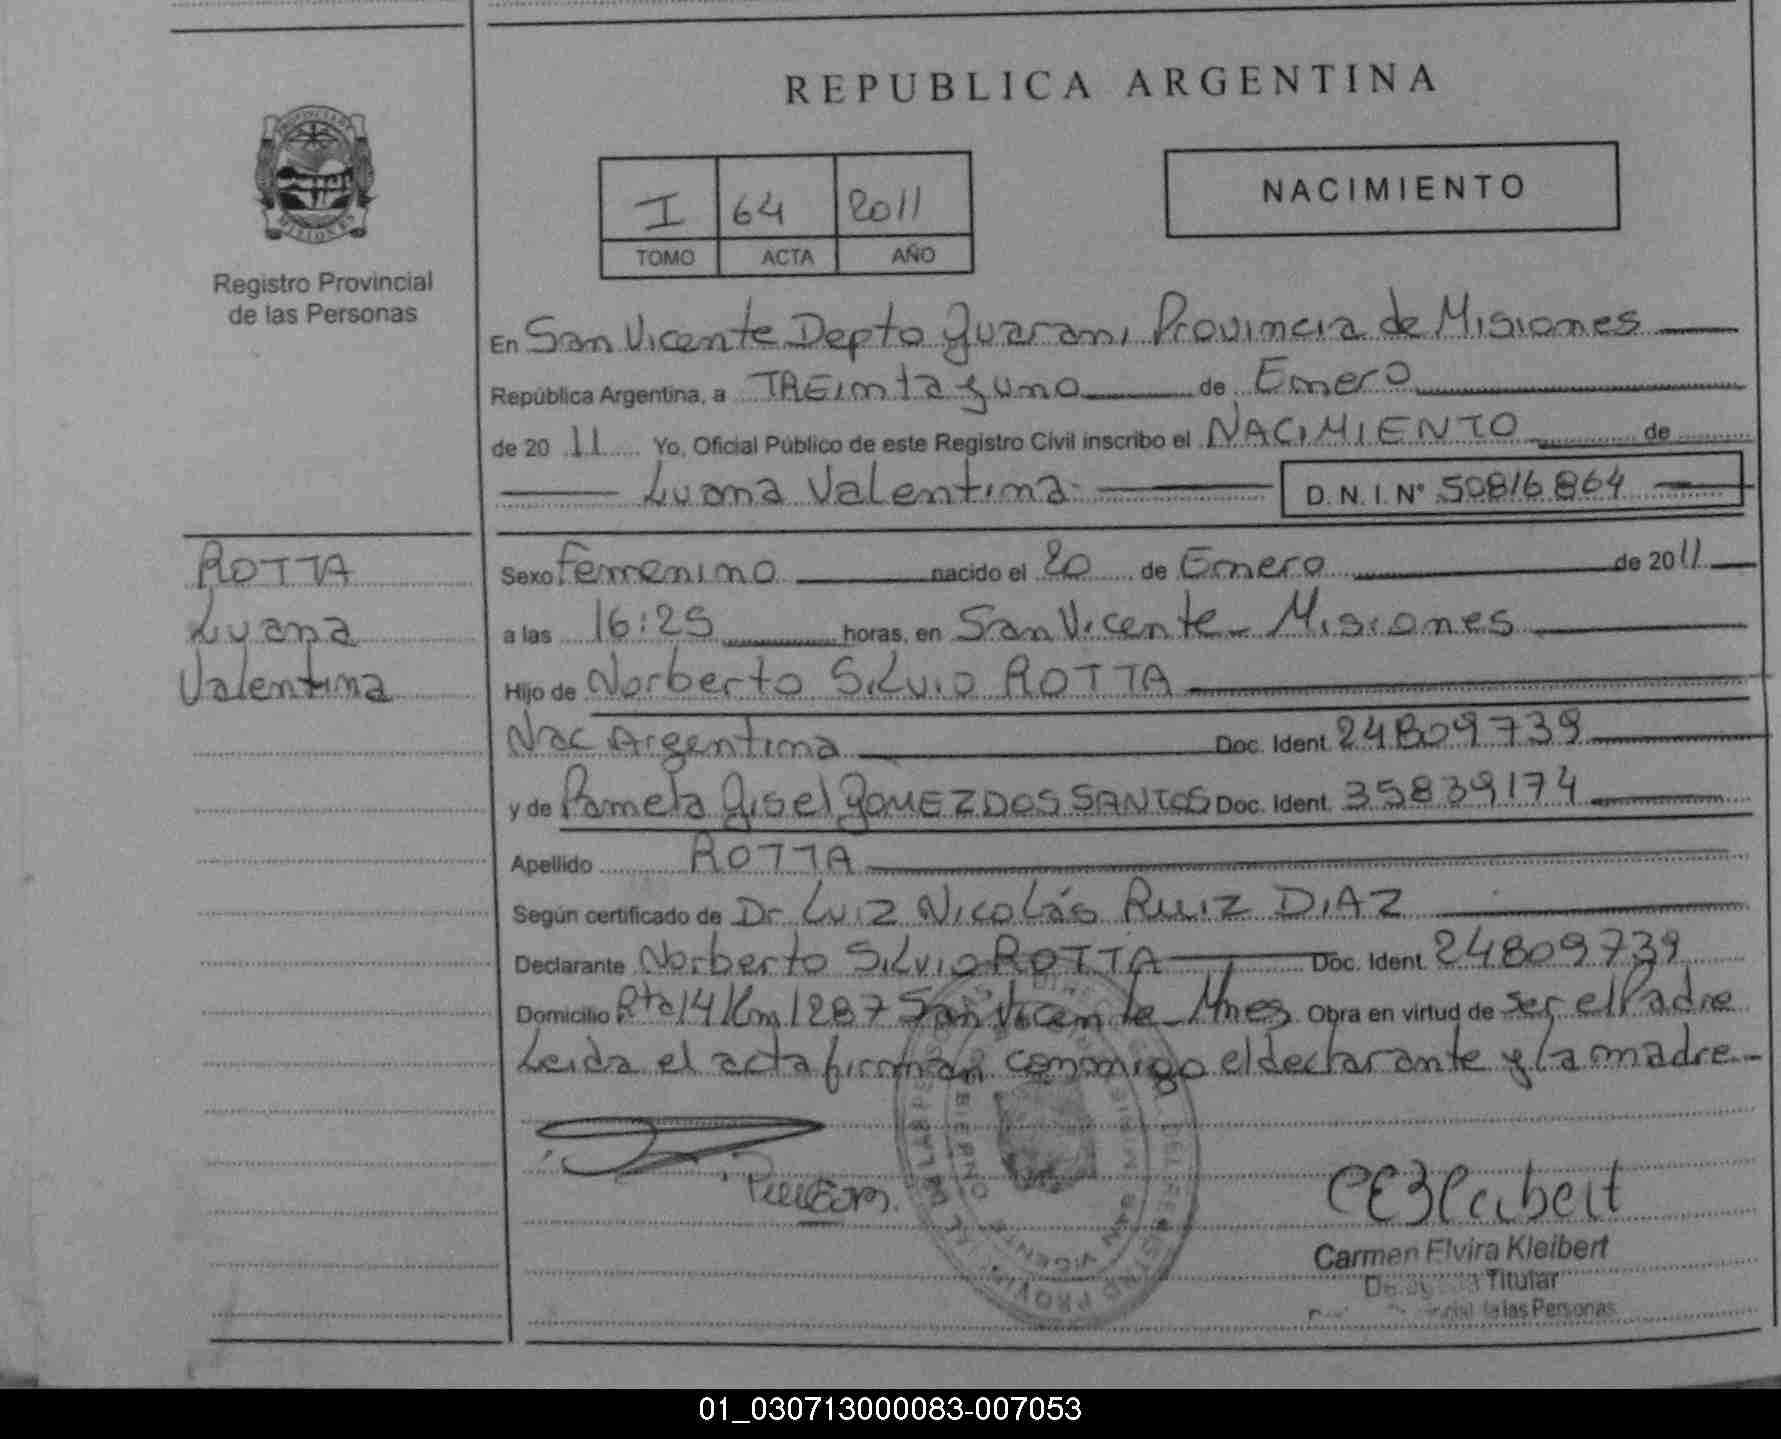 REPUBLICA ARGENTINA
PROVINCIA DE
MISIONES
Registro Provincial
de las Personas
I 64 2011
TOMO ACTA AÑO
NACIMIENTO
En San Vicente Depto Guarani Provincia de Misiones
República Argentina, a TREinta y uno de Enero
de 2011 Yo, Oficial Público de este Registro Civil inscribo el NACIMIENTO de
Luana Valentina D.N.I.Nº 50816864
ROTTA
Luana
Valentina
Sexo Femenino nacido el 20 de Enero de 2011
a las 16:25 horas, en San Vicente - Misiones
Hijo de Norberto Silvio ROTTA
Nac Argentina Doc. Ident. 24809739
y de Pamela Gisel GOMEZ DOS SANTOS Doc. Ident. 35839174
Apellido ROTTA
Según certificado de Dr Luiz Nicolás Ruiz DiAZ
Declarante Norberto Silvio ROTTA Doc. Ident. 24809739
Domicilio Rta 14 Km 1287 San Vicente - Mnes Obra en virtud de ser el Padre
Leida el acta firman conmigo el declarante y la madre
CEKleibert
Carmen Elvira Kleibert
Titular
de las Personas
SAN VICENTE
01_030713000083-007053